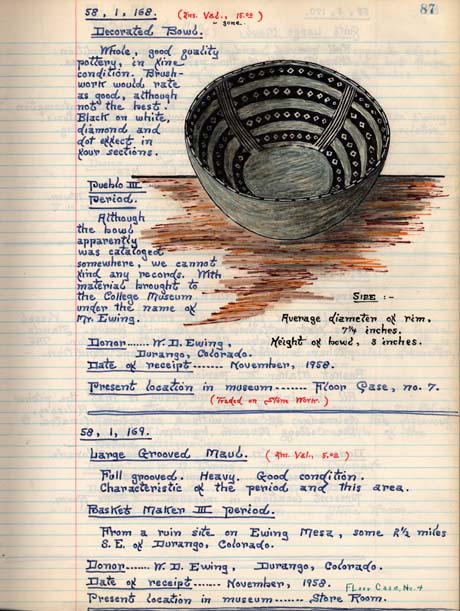 87
58, 1, 168. (Ins. Val., 15.00)
- gone.
Decorated Bowl.
Whole, good quality
pottery, in fine
condition. Brush-
work would rate
as good, although
not the best.
Black on white,
diamond and
dot effect in
four sections.
Pueblo III
Period.
Although
the bowl
apparently
was cataloged
somewhere, we cannot
find any records. With
material brought to
the College Museum
under the name of
Mr. Ewing.
SIZE :-
Average diameter of rim,
7¼ inches.
Height of bowl, 3 inches.
Donor...... W. D. Ewing,
Durango, Colorado.
Date of receipt....... November, 1958.
Present location in museum....... Floor Case, no. 7.
(Traded on Stone Work.)
58, 1, 169.
Large Grooved Maul. (Ins. Val., 5.00)
Full grooved. Heavy. Good condition.
Characteristic of the period and this area.
Basket Maker III Period.
From a ruin site on Ewing Mesa, some 2½ miles
S. E. of Durango, Colorado.
Donor...... W. D. Ewing, Durango, Colorado.
Date of receipt...... November, 1958. Floor Case, No. 4
Present location in museum....... Store Room.